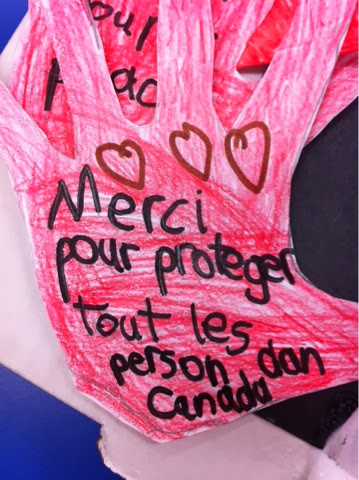 our
pac
Merci
pour proteger
tout les
person dan
Canada